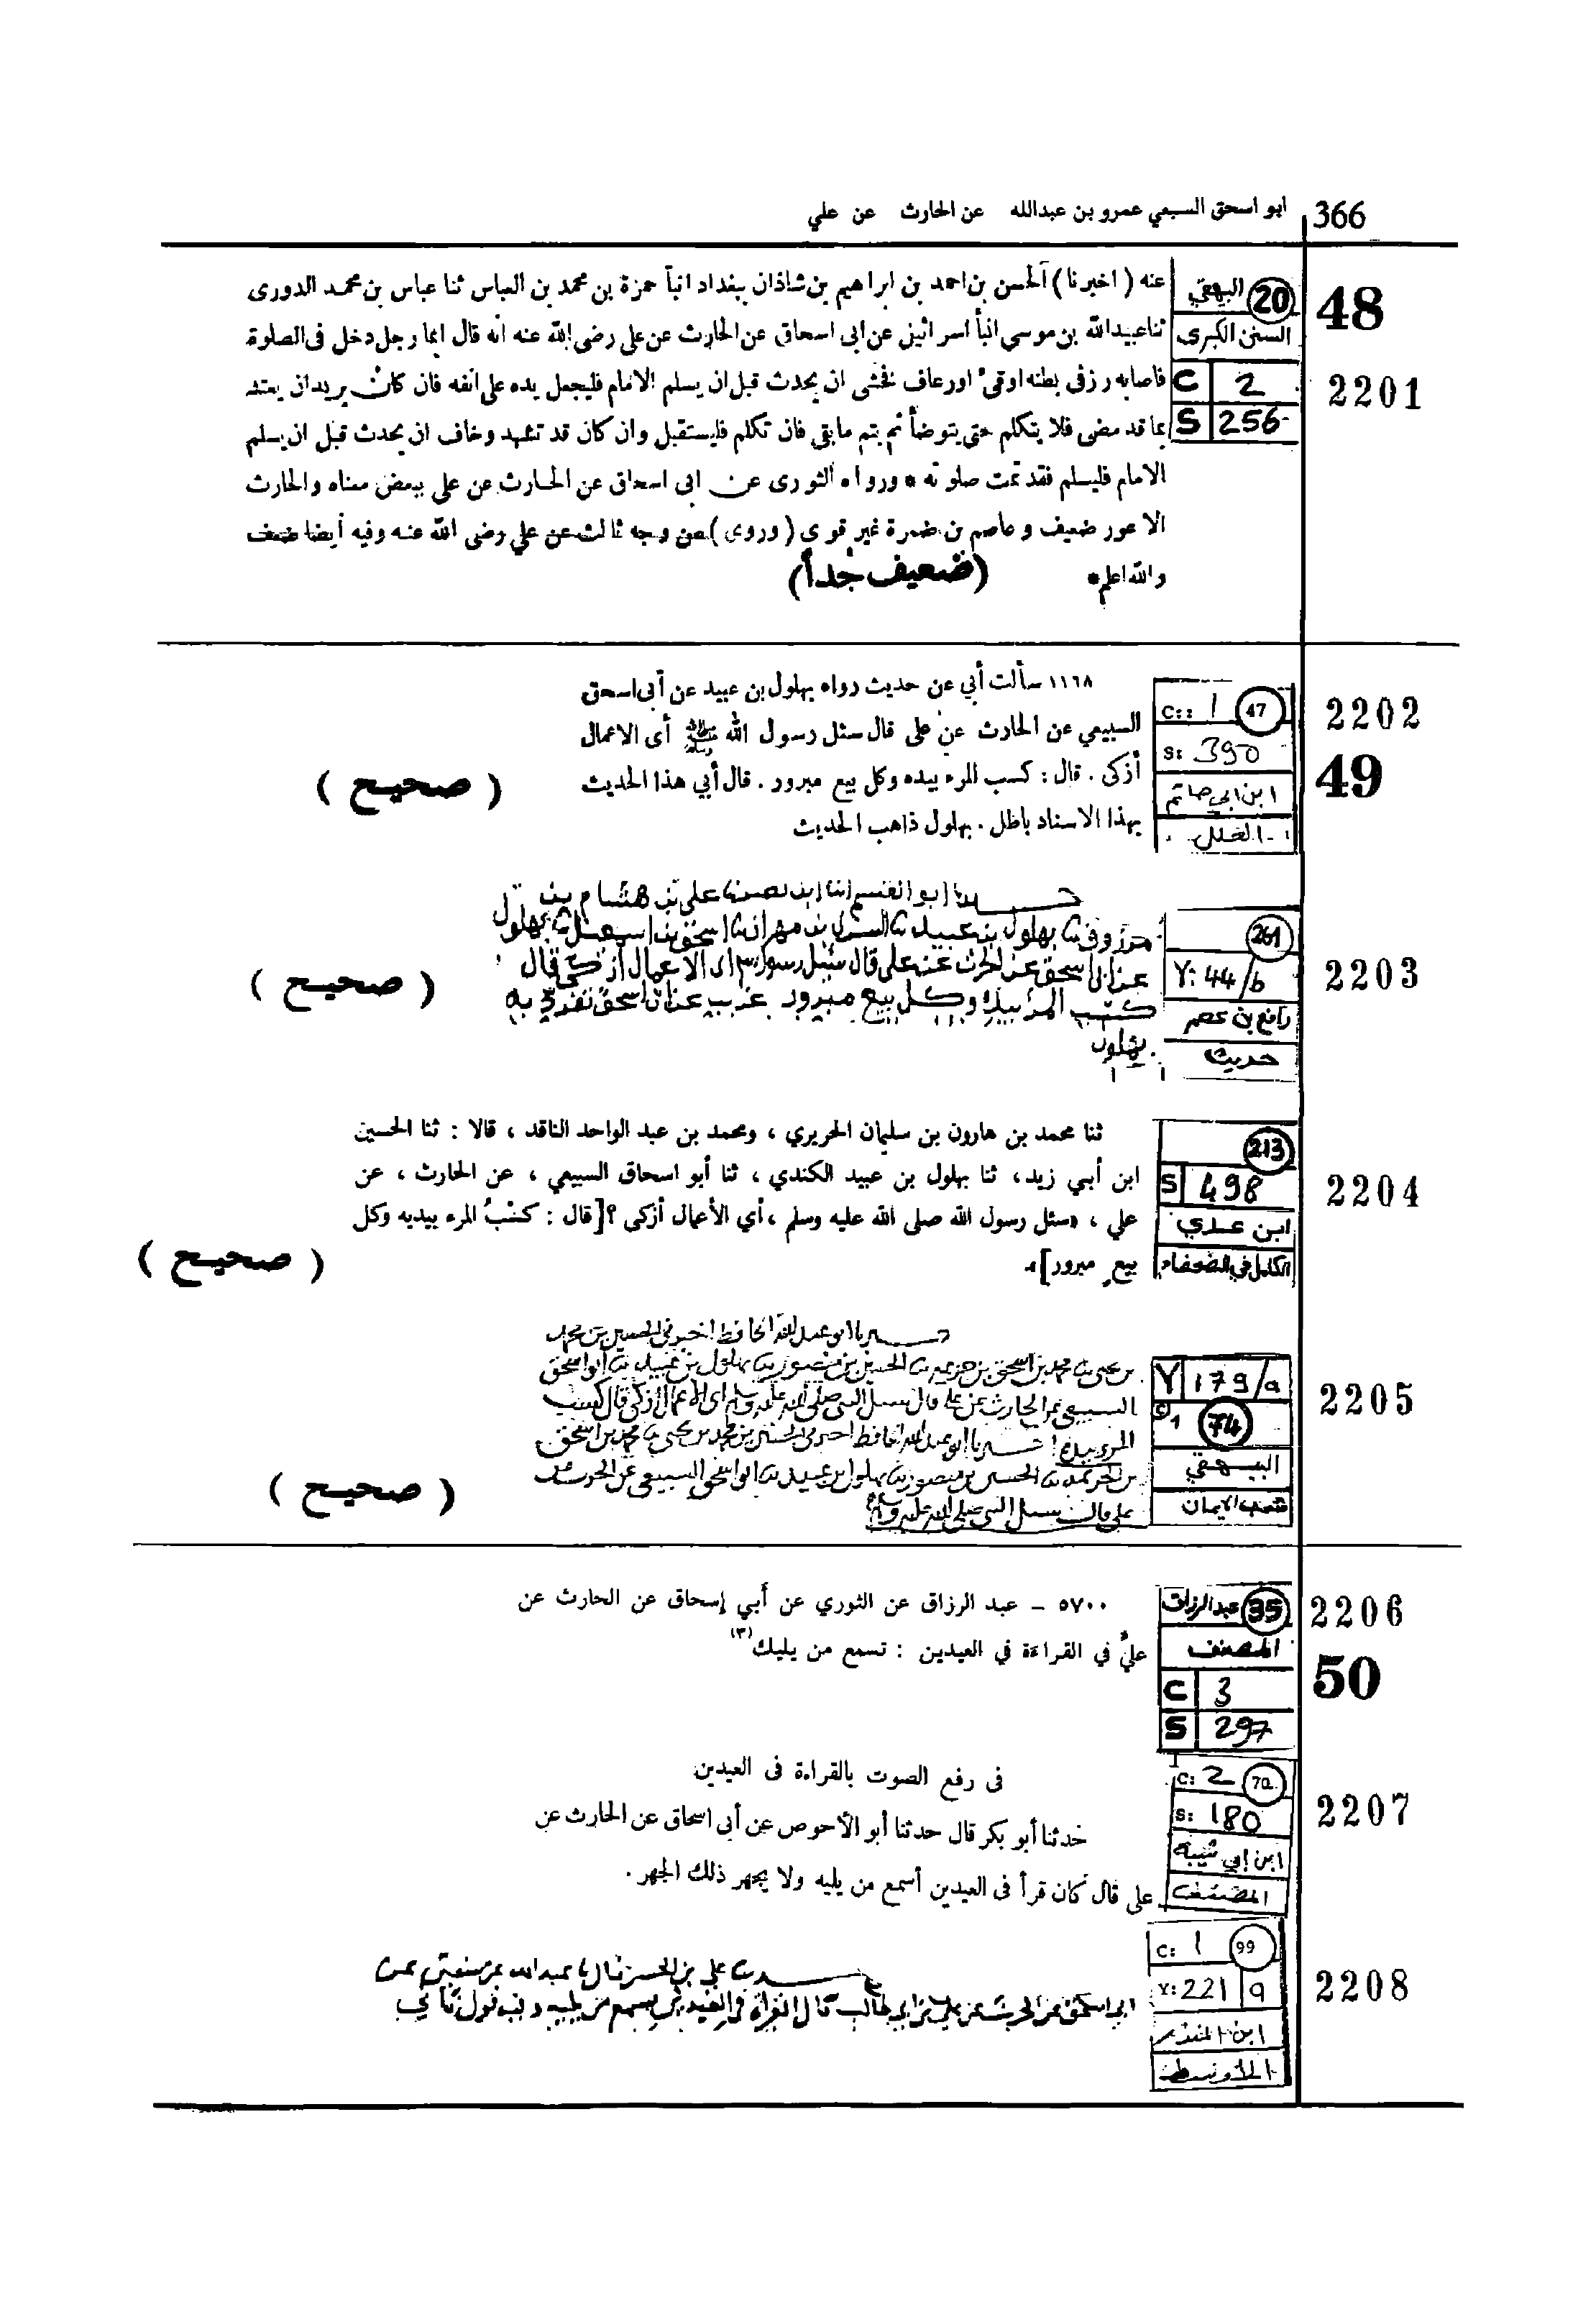 366 ابو اسحق السبعي عمرو بن عبدالله عن الحارث عن علي
48
2201
البيهقي 20
السنن الكبرى
C 2
S 256
عنه (اخبرنا) الحسن بن احمد بن ابراهيم بن شاذان ببغداد انبأ حمزة بن محمد بن العباس ثنا عباس بن محمد الدورى
ثنا عبيدالله بن موسى انبأ اسرائيل عن ابى اسحاق عن الحارث عن على رضى الله عنه انه قال ايما رجل دخل فى الصلوة
فاصابه رز فى بطنه اوقىء اورعاف فخشى ان يحدث قبل ان يسلم الامام فليجعل يده على انفه فان كان يريد ان يعتد
بما قد مضى فلا يتكلم حتى يتوضأ ثم يتم ما بقى فان تكلم فليستقبل وان كان قد تشهد وخاف ان يحدث قبل ان يسلم
الامام فليسلم فقد تمت صلوته * ورواه الثورى عن ابى اسحاق عن الحارث عن على ببعض معناه والحارث
الاعور ضعيف وعاصم بن ضمرة غير قوى (وروى) من وجه ثالث عن علي رضى الله عنه وفيه أيضا ضعف
والله اعلم *
(ضعيف جداً)
2202
49
C: 1 47
S: 390
ابن ابي حاتم
العلل
١١٦٨ سألت أبي عن حديث رواه بهلول بن عبيد عن أبى اسحق
السبيعي عن الحارث عن على قال سئل رسول الله ﷺ أى الاعمال
أزكى . قال : كسب المرء بيده وكل بيع مبرور . قال أبي هذا الحديث
بهذا الاسناد باطل . بهلول ذاهب الحديث
( صحيح )
2203
261
Y: 44/b
رافع بن عصم
حديث
مرزوق ثنا بهلول بن عبيد
عن ابى اسحق عن الحرث عن على قال سئل رسول اى الاعمال أزكى قال
كسب المرء بيده وكل بيع مبرور غريب عن ابى اسحق تفرد به
بهلول
( صحيح )
2204
213
S 498
ابن عدي
الكامل في الضعفاء
ثنا محمد بن هارون بن سليمان الحريري ، ومحمد بن عبد الواحد الناقد ، قالا : ثنا الحسين
ابن أبي زيد، ثنا بهلول بن عبيد الكندي ، ثنا أبو اسحاق السبيعي ، عن الحارث ، عن
علي ، «سئل رسول الله صلى الله عليه وسلم ، أي الأعمال أزكى ؟[قال : كسْبُ المرء بيديه وكل
بيعٍ مبرور]».
( صحيح )
2205
Y 179/a
C 1 74
البيهقي
شعب الايمان
ابو عبد الله الحافظ اخبرنى الحسين بن محمد
بن يحيى ثنا محمد بن اسحق بن خزيمه ثنا الحسين بن منصور ثنا بهلول بن عبيد ثنا ابو اسحق
السبيعى عن الحارث عن على قال سئل النبى صلى الله عليه وسلم اى الاعمال أزكى قال كسب
المرء بيده ابو عبد الله الحافظ اخبرنى الحسين بن محمد بن يحيى ثنا محمد بن اسحق
بن خزيمه ثنا الحسين بن منصور ثنا بهلول بن عبيد ثنا ابو اسحق السبيعى عن الحرث عن
على قال سئل النبى صلى الله عليه
( صحيح )
2206
50
عبد الرزاق 35
المصنف
C 3
S 297
٥٧٠٠ – عبد الرزاق عن الثوري عن أَبي إسحاق عن الحارث عن
عليّ في القراءة في العيدين : تسمع من يليك (٣)
2207
C: 2 70
S: 180
ابن ابي شيبه
المصنف
فى رفع الصوت بالقراءة فى العيدين
حدثنا أبو بكر قال حدثنا أبو الأحوص عن أبى اسحاق عن الحارث عن
على قال كان قرأ فى العيدين أسمع من يليه ولا يجهر ذلك الجهر .
2208
C: 1 99
Y: 221 a
ابن المنذر
الاوسط
علي بن الحسن قال ثنا عبدالله عن سفين عن
ابى اسحق عن الحرث عن علي بن ابي طالب قال القراة في العيدين يسمع من يليه وفيه قول ثاني